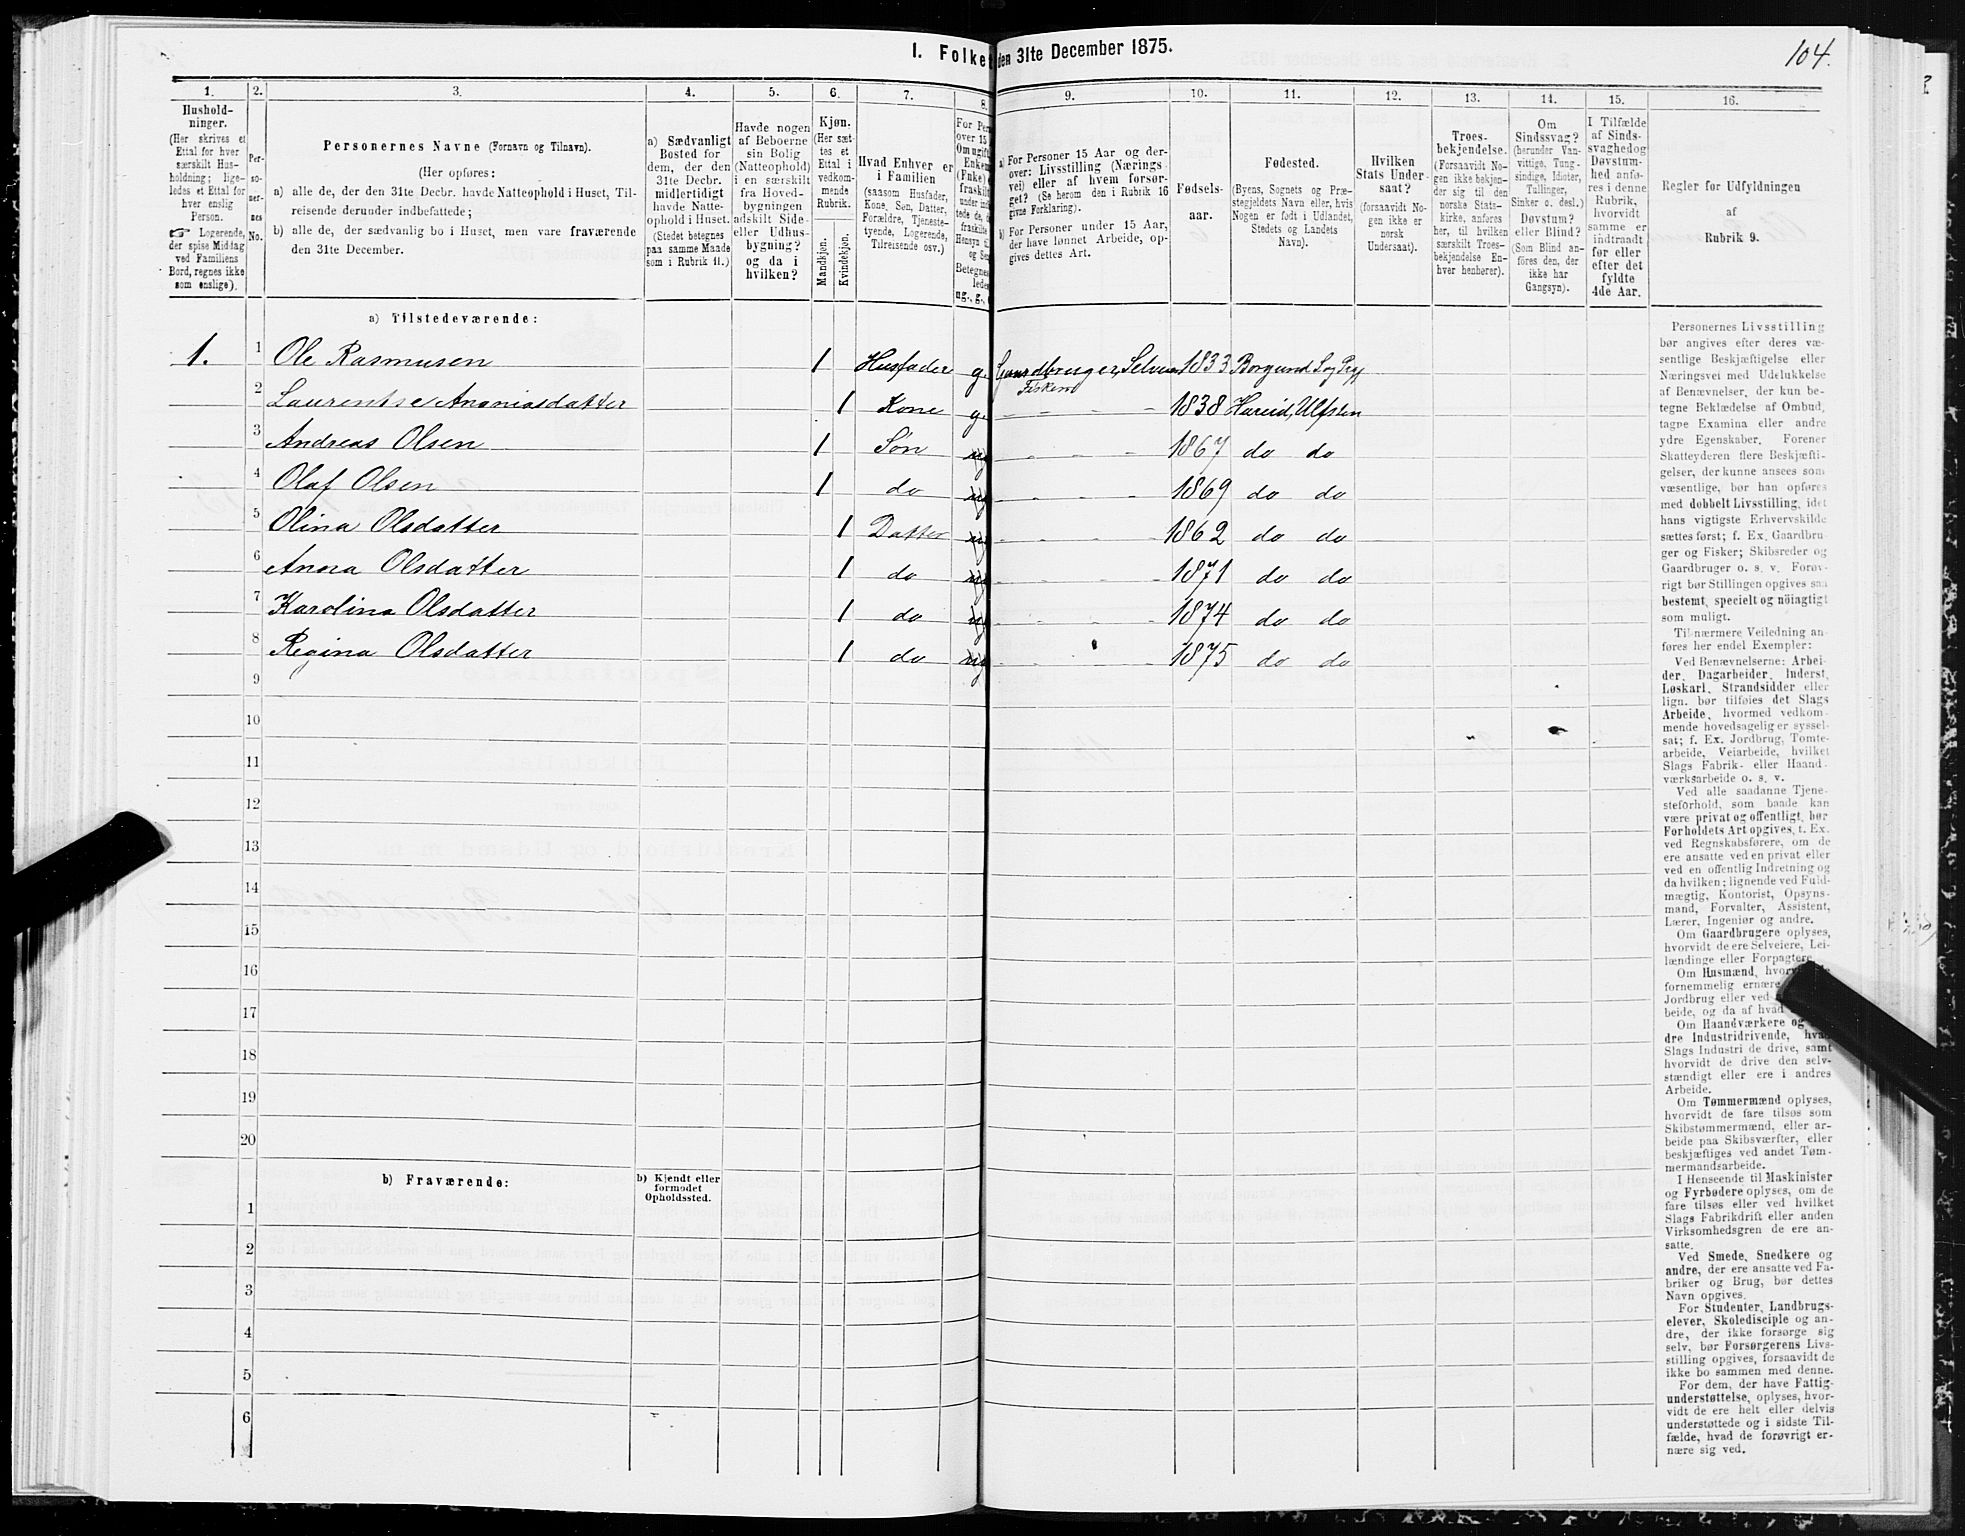 I. Folke den 31te December 1875.
104.
1. 2. 3. 4. 5. 6. 7. 8. 9. 10. 11. 12. 13. 14. 15. 16.
Hushold-
ninger.
(Her skrives et
Ettal for hver
særskilt Hus-
holdning; lige-
ledes et Ettal for
hver enslig
Person.
☞ Logerende,
der spise Middag
ved Familiens
Bord, regnes ikke
som enslige).
Per-
so-
ner-
nes
No.
Personernes Navne (Fornavn og Tilnavn).
(Her opføres:
a) alle de, der den 31te Decbr. havde Natteophold i Huset, Til-
reisende derunder indbefattede;
b) alle de, der sædvanlig bo i Huset, men vare fraværende
den 31te December.
a) Sædvanligt
Bosted for
dem, der den
31te Decbr.
midlertidigt
havde Natte-
ophold i Huset.
(Stedet betegnes
paa samme Maade
som i Rubrik 11.)
Havde nogen
af Beboerne
sin Bolig
(Natteophold)
i en særskilt
fra Hoved-
bygningen
adskilt Side-
eller Udhus-
bygning?
og da i
hvilken?
Kjøn.
(Her sæt-
tes et
Ettal i
vedkom-
mende
Rubrik.
Mandkjøn.
Kvindekjøn.
Hvad Enhver er
i Familien
(saasom Husfader,
Kone, Søn, Datter,
Forældre, Tjeneste-
tyende, Logerende,
Tilreisende osv.)
For Per
over 15
Om ugift
Enkem
(Enke)
fraskilt
under ind
tede de,
fraskilte
Hensyn
og Se
Betegnes
lede
ug., g.,
a) For Personer 15 Aar og der-
over: Livsstilling (Nærings-
vei) eller af hvem forsør-
get? (Se herom den i Rubrik 16
givne Forklaring).
b) For Personer under 15 Aar,
der have lønnet Arbeide, op-
gives dettes Art.
Fødsels-
aar.
Fødested.
(Byens, Sognets og Præ-
stegjeldets Navn eller, hvis
Nogen er født i Udlandet,
Stedets og Landets
Navn).
Hvilken
Stats Under-
saat?
(forsaavidt No-
gen ikke er
norsk
Undersaat).
Troes-
bekjendelse.
(Forsaavidt No-
gen ikke bekjen-
der sig til den
norske Stats-
kirke, anføres
her, til hvilken
særskilt Troes-
bekjendelse En-
hver henhører).
Om
Sindssvag?
(herunder Van-
vittige, Tung-
sindige, Idioter,
Tullinger,
Sinker o. desl.)
Døvstum?
eller Blind?
(Som Blind an-
føres den, der
ikke har
Gangsyn).
I Tilfælde
af Sinds-
svaghed og
Døvstum-
hed anfø-
res i denne
Rubrik,
hvorvidt
samme er
indtraadt
før eller
efter det
fyldte
4de Aar.
Regler for Udfyldningen
af
Rubrik 9.
a) Tilstedeværende:
1. 1 Ole Rasmusen 1 Husfader g. Gaardbruger, Selveier 1833 Borgund Sog Prg
Fisker
2 Laurentse Ananiasdatter 1 Kone g. - - - - 1838 Hareid, Ulfsten
3 Andreas Olsen 1 Søn ug - - - - 1867 do do
4 Olaf Olsen 1 do ug - - - - 1869 do do
5 Olina Olsdatter 1 Datter ug - - - - 1862 do do
6 Anna Olsdatter 1 do ug - - - - 1871 do do
7 Karolina Olsdatter 1 do ug - - - - 1874 do do
8 Regina Olsdatter 1 do ug - - - - 1875 do do
9
10
11
12
13
14
15
16
17
18
19
20
b) Fraværende:
b) Kjendt eller
formodet
Opholdssted.
1
2
3
4
5
6
Personernes Livsstilling
bør angives efter deres væ-
sentlige Beskjæftigelse eller
Næringsvei med Udelukkelse
af Benævnelser, der kun be-
tegne Beklædelse af Ombud,
tagne Examina eller andre
ydre Egenskaber. Forener
Skatteyderen flere Beskjæfti-
gelser, der kunne ansees som
væsentlige, bør han opføres
med dobbelt Livsstilling, idet
hans vigtigste Erhvervskilde
sættes først; f. Ex. Gaardbru-
ger og Fisker; Skibsreder og
Gaardbruger o. s. v. Forøv-
rigt bør Stillingen opgives saa
bestemt, specielt og nöiagtigt
som muligt.
Til nærmere Veiledning an-
føres her endel Exempler:
Ved Benævnelserne: Arbei-
der, Dagarbeider, Inderst,
Løskarl, Strandsidder eller
lign. bør tilføies det Slags
Arbeide, hvormed vedkom-
mende hovedsagelig er syssel-
sat; f. Ex. Jordbrug, Tomte-
arbeide, Veiarbeide, hvilket
Slags Fabrik- eller Haand-
værksarbeide o. s. v.
Ved alle saadanne Tjene-
steforhold, som baade kan
være privat og offentligt, bør
Forholdets Art opgives, t. Ex.
ved Regnskabsførere, om de
ere ansatte ved en privat eller
ved en offentlig Indretning og
da hvilken; lignende ved Fuld-
mægtig, Kontorist, Opsyns-
mand, Forvalter, Assistent,
Lærer, Ingeniør og andre.
Om Gaardbrugere oplyses,
hvorvidt de ere Selveiere, Lei-
lændinge eller Forpagtere.
Om Husmænd,
fornemmelig ernære
Jordbrug eller ved
beide, og da af hvad
Om Haandværkere og
dre Industridrivende, hvad
Slags Industri de drive, samt
hvorvidt de drive den selv-
stændigt eller ere i andres
Arbeide.
Om Tømmermænd oplyses,
hvorvidt de fare tilsøs som
Skibstømmermænd, eller ar-
beide paa Skibsværfter, eller
beskjæftiges ved andet Tøm-
mermandsarbeide.
I Henseende til Maskinister
og Fyrbødere oplyses, om de
fare tilsøs eller ved hvilket
Slags Fabrikdrift eller anden
Virksomhedsgren de ere an-
satte.
Ved Smede, Snedkere og
andre, der ere ansatte ved Fa-
briker og Brug, bør dettes
Navn opgives.
For Studenter, Landbrugs-
elever, Skoledisciple og an-
dre, der ikke forsørge sig
selv, bør Forsørgerens Livs-
stilling opgives, forsaavidt de
ikke bo sammen med denne.
For dem, der have Fattig-
understøttelse, oplyses, hvor-
vidt de ere helt eller delvis
understøttede og i sidste Til-
fælde, hvad de forøvrigt er-
nære sig ved.